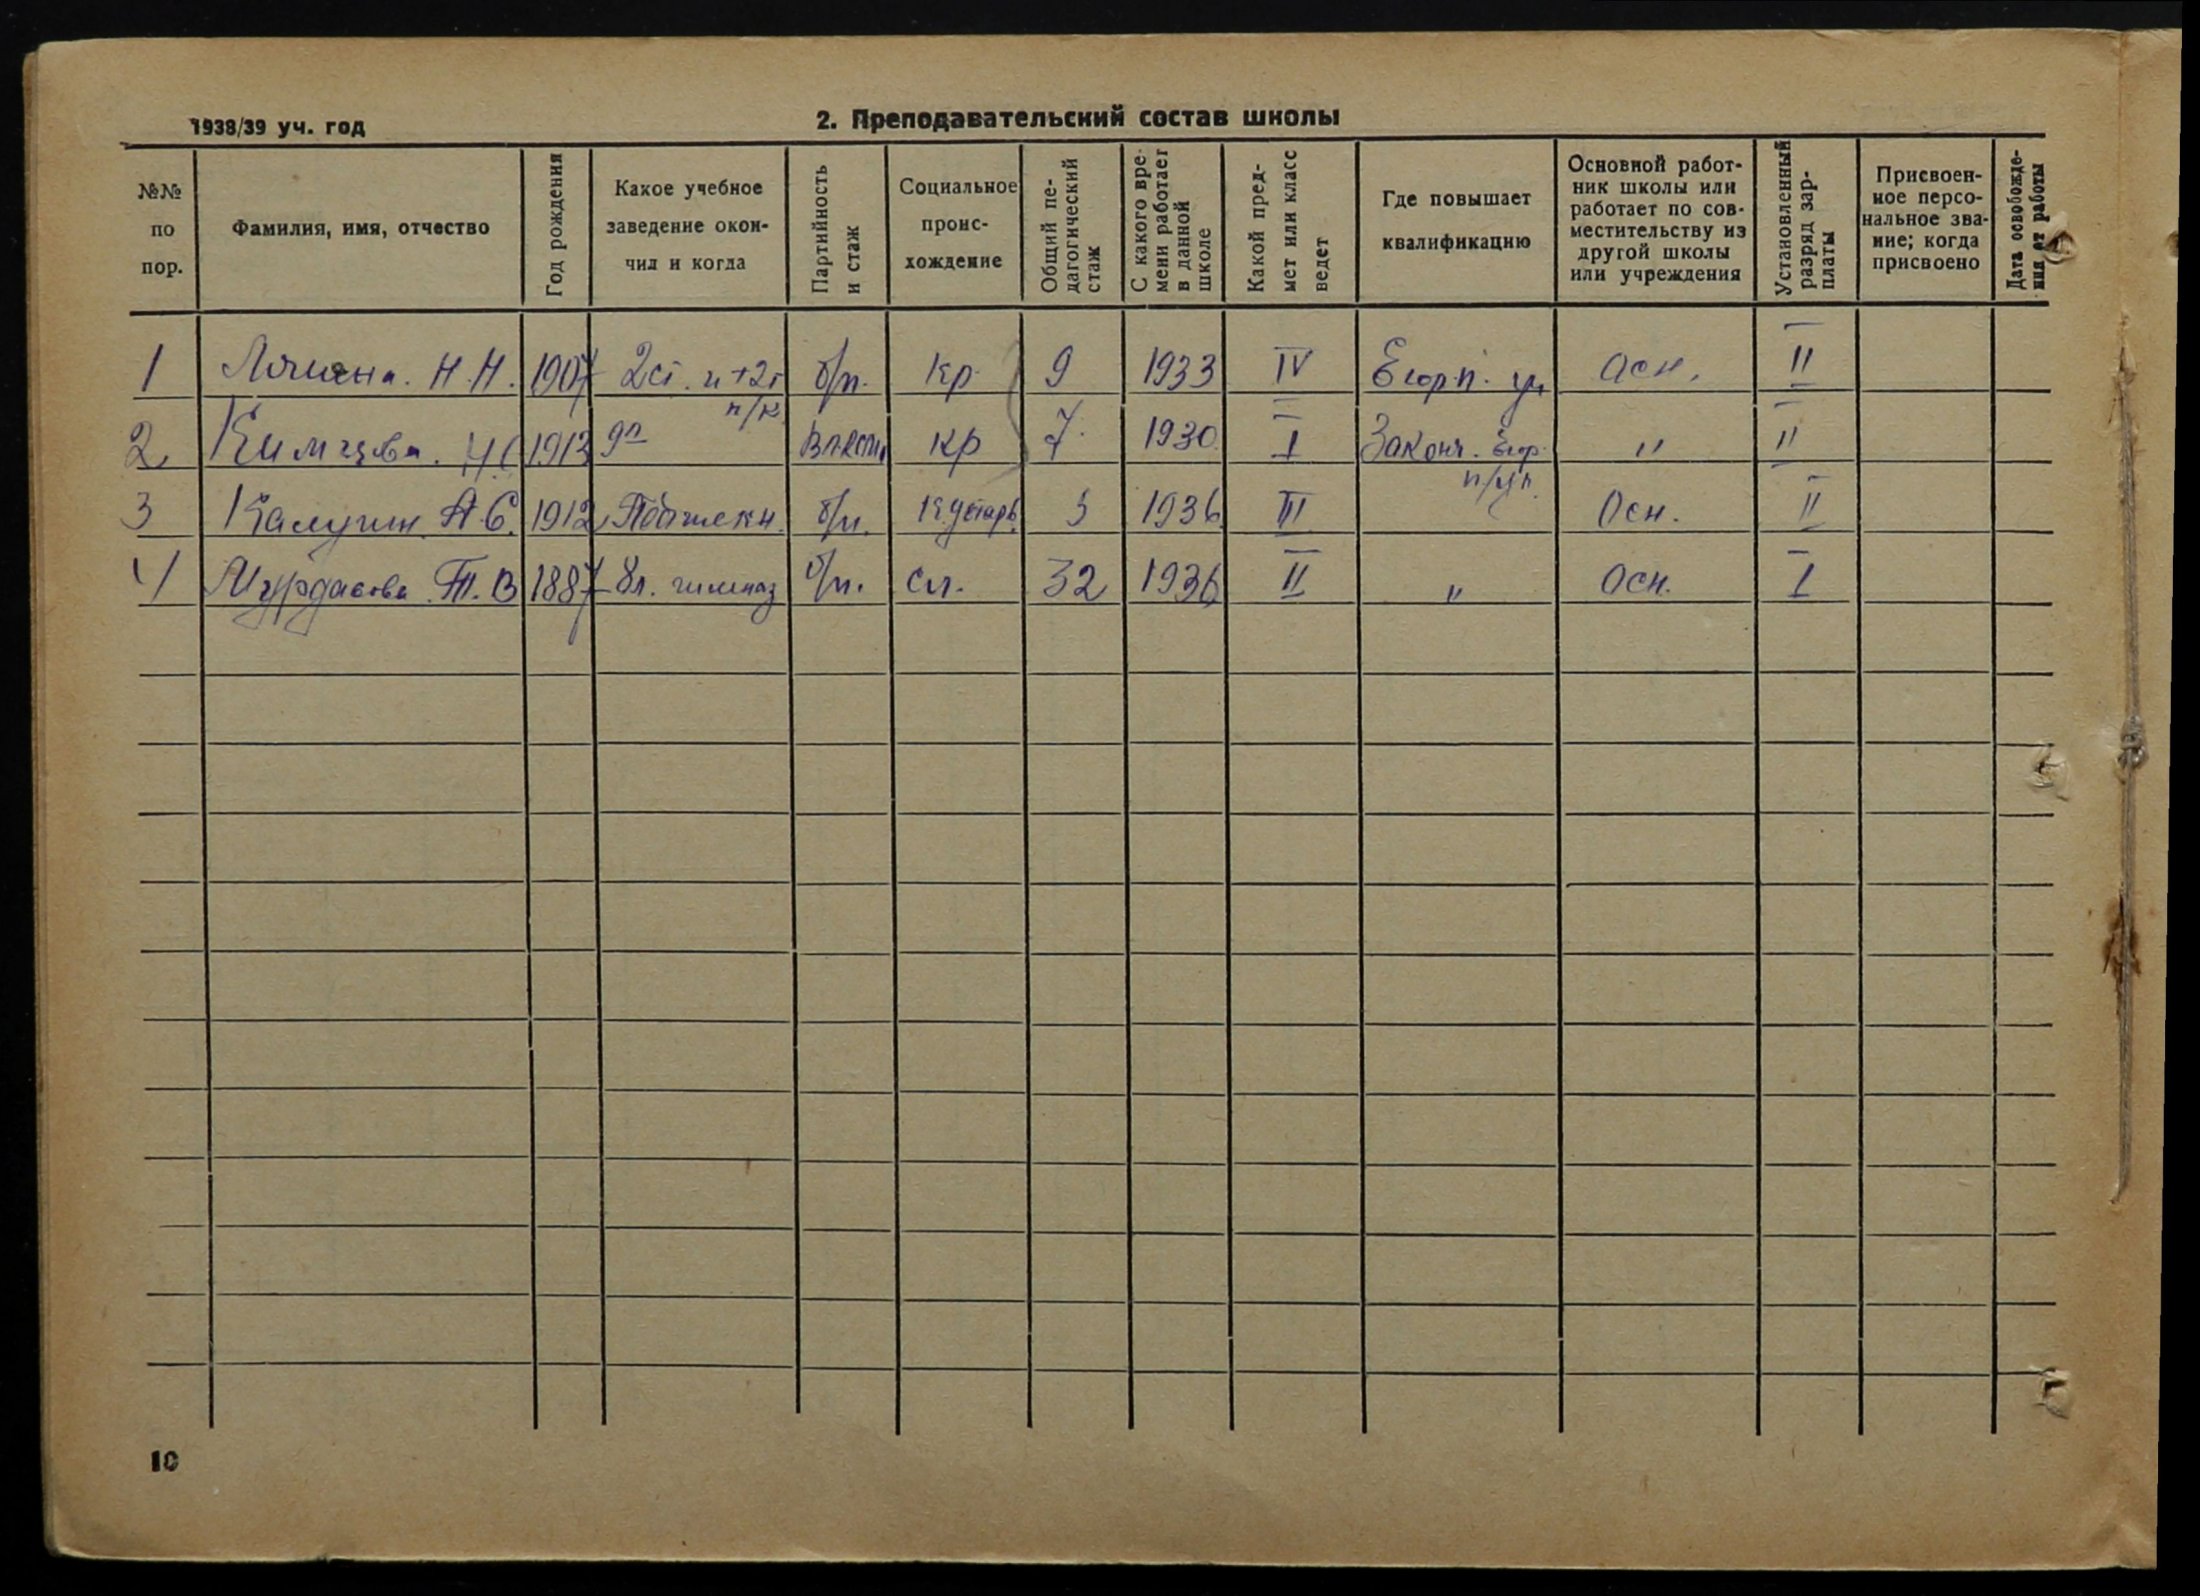 1938/39 уч. год
2. Преподавательский состав школы
№№ по пор.
Фамилия, имя, отчество
Год рождения
Какое учебное заведение окончил и когда
Партийность и стаж
Социальное происхождение
Общий педагогический стаж
С какого времени работает в данной школе
Какой предмет или класс ведет
Где повышает квалификацию
Основной работник школы или работает по совместительству из другой школы или учреждения
Установленный разряд зарплаты
Присвоенное персональное звание; когда присвоено
Дата освобождения от работы
1 Н.Н. 1907 2 ст. п/к б/п. кр. 9 1933 IV Егор. п. Осн. II
2 1913 9 кр 7. 1930 I Законч. Егор. п/уч. " II
3 Калугин А.С. 1912 б/п. Кустарь 3 1936 III Осн. II
4 Мурдасова Т.В 1887 8 л. гимназ б/п. сл. 32 1936 II " Осн. I
10